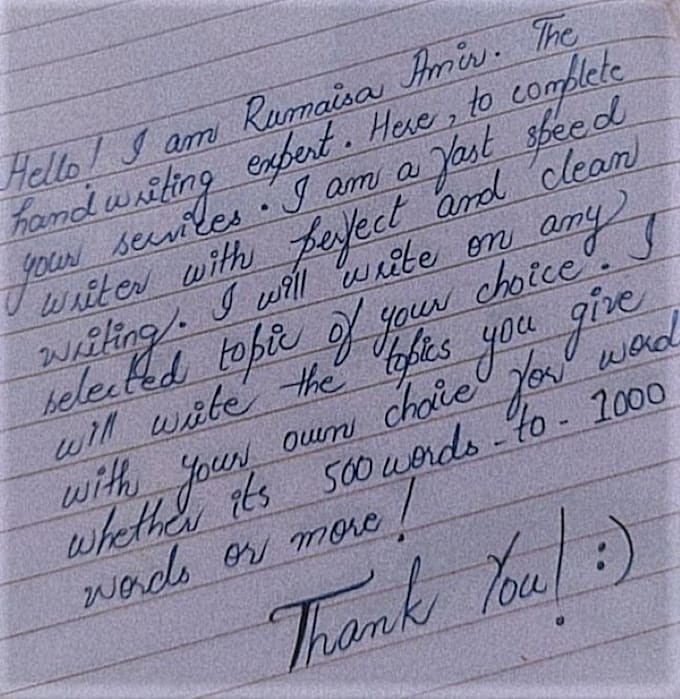 Hello! I am Rumaisa Amir. The
handwriting expert. Here, to complete
your services. I am a fast speed
writer with perfect and clean
writing. I will write on any
selected topic of your choice. I
will write the topics you give
with your own choice for word
whether its 500 words-to-1000
words or more!
Thank You! :)